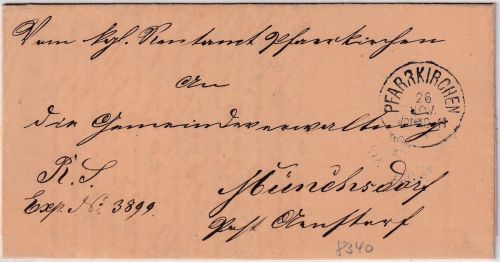 Vom kgl. Rentamt Pfarrkirchen
An
die Gemeindeverwaltung
PFARRKIRCHEN
26
NOV
R. S.
Münchsdorf
Exp. No: 3899.
Post Arnstorf
8340